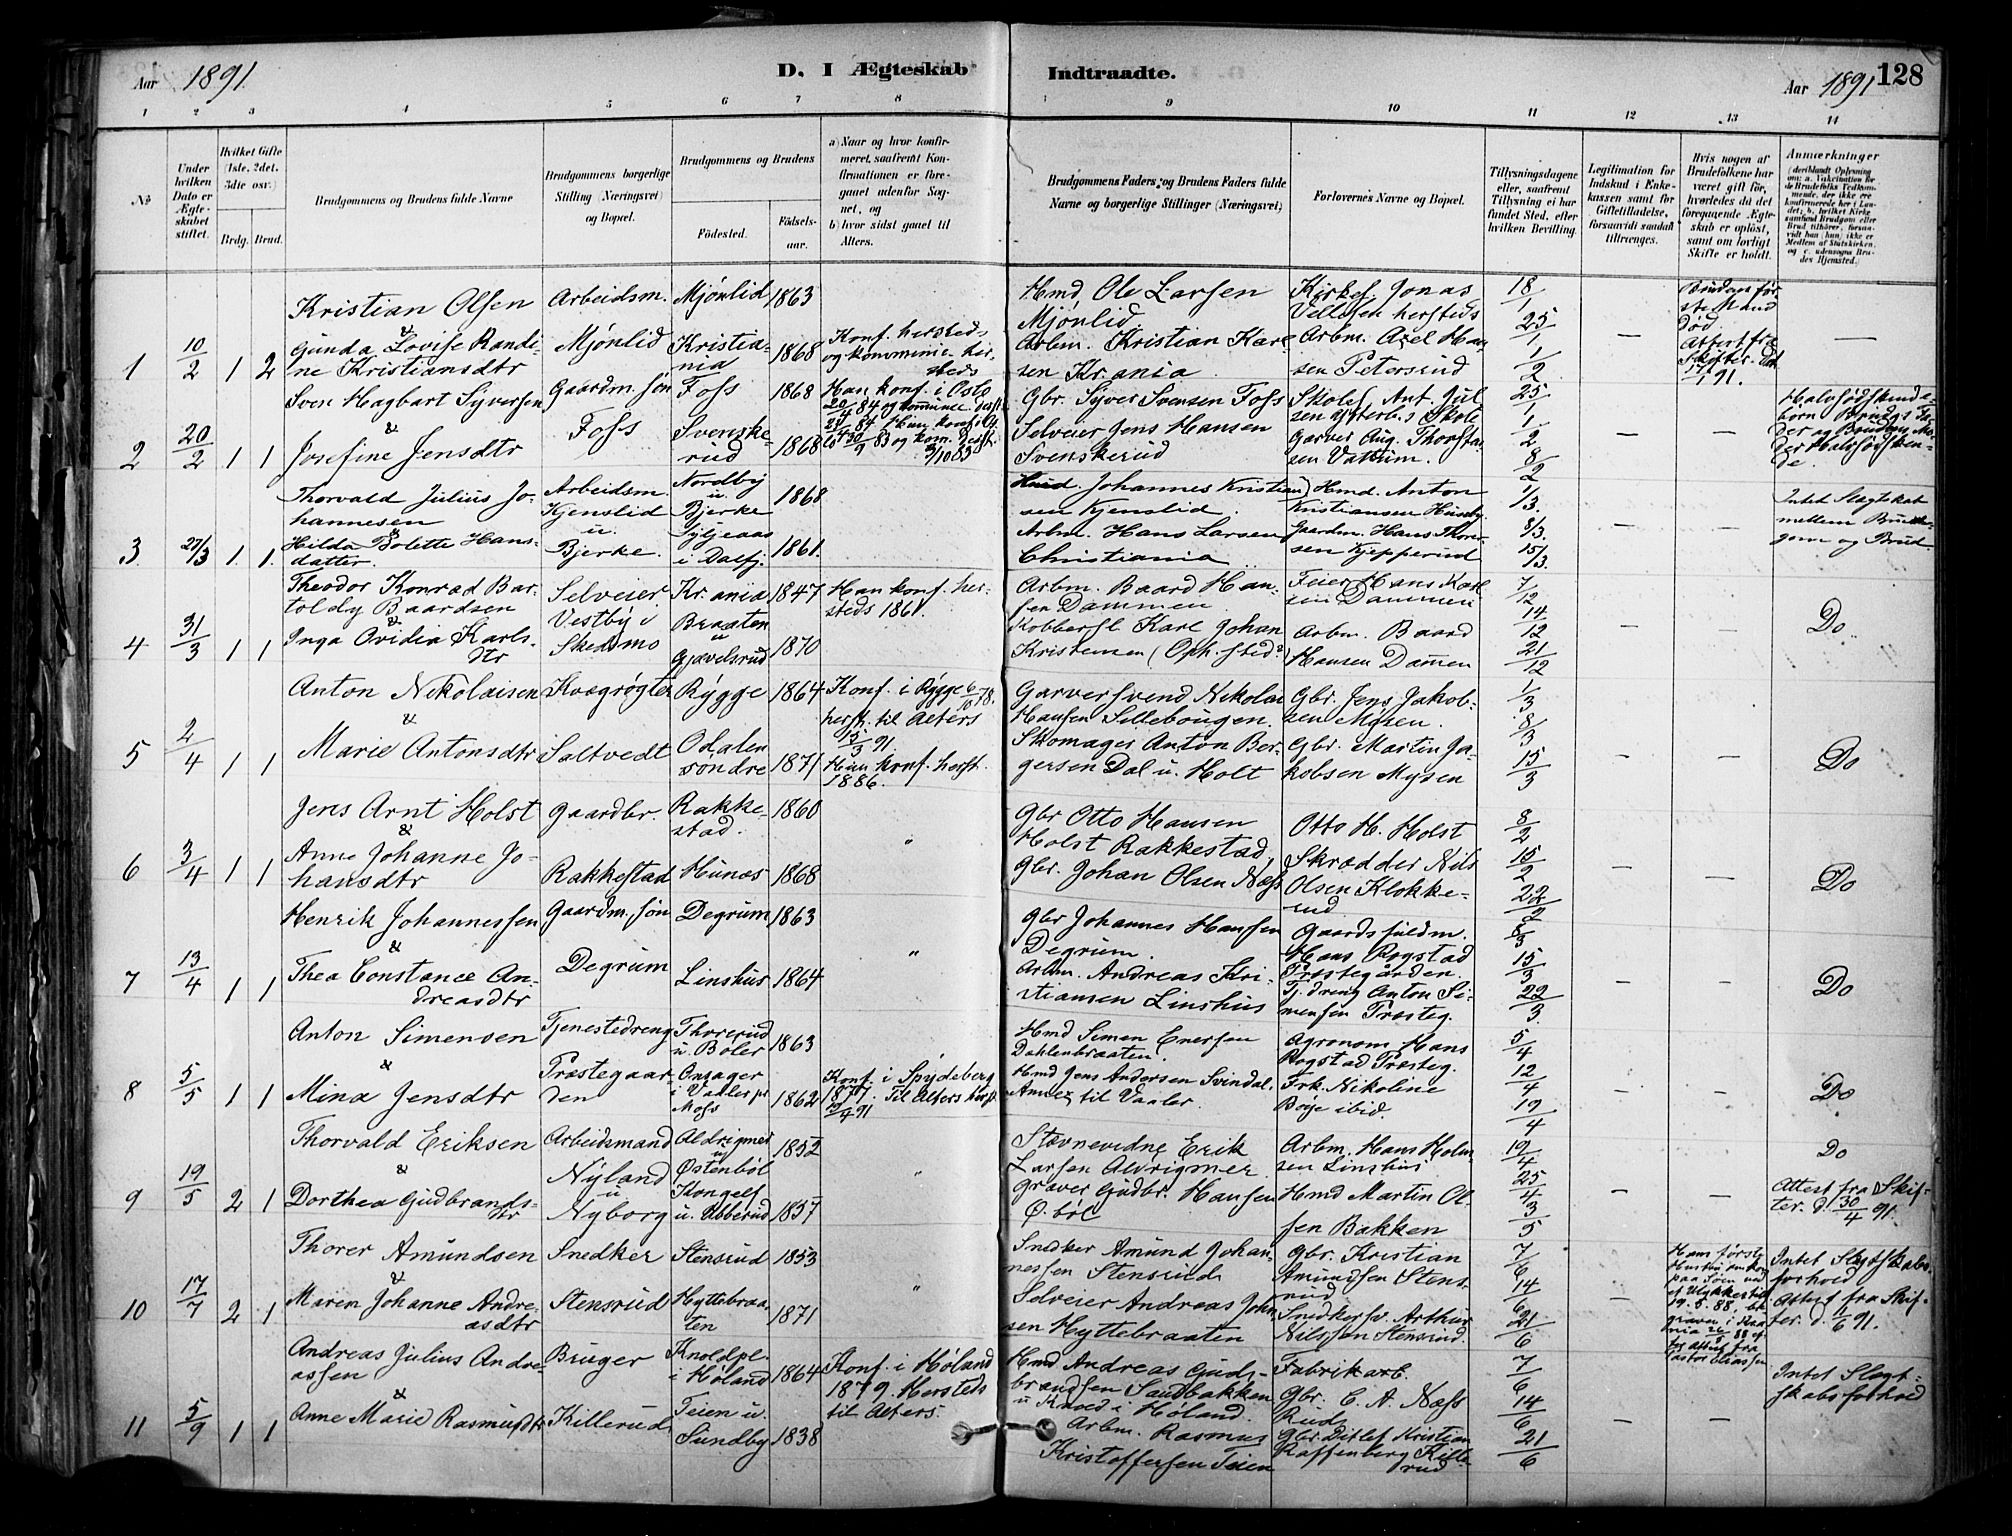 Aar 1891.
D. I Ægteskab Indtraadte.
Aar 1891 128
1 2 3 4 5 6 7 8 9 10 11 12 13 14
No
Under hvilken Dato er Ægteskabet stiftet.
Hvilket Gifte (1ste, 2det, 3dte osv.)
Brdg. Brud.
Brudgommens og Brudens fulde Navne
Brudgommens borgerlige Stilling (Næringsvei) og Bopæl.
Brudgommens og Brudens
Fødested.
Fødselsaar.
a) Naar og hvor konfirmeret, saafremt Konfirmationen er foregaaet udenfor Sognet, og
b) hvor sidst gaaet til Alters.
Brudgommens Faders og Brudens Faders fulde Navne og borgerlige Stillinger (Næringsvei)
Forlovernes Navne og Bopæl.
Tillysningsdagene eller, saafremt Tillysning ei har fundet Sted, efter hvilken Bevilling.
Legitimation for Indskud i Enkekassen samt for Giftetilladelse, forsaavidt saadan tiltrænges.
Hvis nogen af Brudefolkene har været gift før, hvorledes da det foregaaende Ægteskab er opløst, samt om lovligt Skifte er holdt.
Anmærkninger
1 10/2 1 2
Kristian Olsen
&
Gunda Lovise Randine Kristiansdtr
Arbeidsm. Mjønlid
Mjønlid 1863
Kristiania 1868
Konf. hersteds og kommunic. hersteds
Hmd. Ole Larsen Mjønlid
Arbm. Kristian Karlsen Kr.ania
Kirkes. Jonas Vellesen hersteds
Arbm. Axel Hansen Petersrud
18/1 25/1 1/2
—
Brudens første Mand død
Attest fra Skifter. dat 17/1 91.
—
2 20/2 1 1
Sven Hagbart Syversen
&
Josefine Jensdtr
Gaardm. søn Foss
Foss 1868
Svenskerud 1868
Han konf. i Oslo
Gbr. Syver Svensen Foss
Selveier Jens Hansen Svenskerud
Garver Aug. Thorstensen Vatrum.
25/1 1/2 8/2
3 27/3 1. 1.
Thorvald Julius Johannesen
&
Hilda Bolette Hansdatter.
Arbeidsm. Kjenslid u. Bjerke.
Nordby u. Bjerke 1868
i Dalfj. 1861.
Hmd. Johannes Kristiansen Kjenslid.
Arbm. Hans Larsen Christiania
Hmd. Anton Kristiansen Huseby.
Gaardm. Hans Thoresen Kjepperud
1/3. 8/3. 15/3.
Intet Slægtskab mellem Brudgom og Brud
4 31/3 1 1
Theodor Konrad Bartoldy Baardsen
&
Inga Ovidia Karlsdtr
Selveier Vestby i Skedsmo
Kr.ania 1847
Braaten u Gjævelsrud 1870
Han konf. hersteds 1861.
Arbm. Baard Hansen Dammen.
Kobbersl. Karl Johan Kristensen (Oph. sted?)
Feier Hans Karlsen Dammen
Arbm. Baard Hansen Damen
7/12 14/12 21/12
— — Do
5 2/4 1 1
Anton Nikolaisen
&
Marie Antonsdtr
Kvægrøgter Saltvedt
Rygge 1864
Odalen søndre 1871
Konf. i Rygge 6/10 78. herst. til Alters 15/3 91
Hun konf. herst. 1886.
Garversvend Nikolai Hansen Sillebougen.
Skomager Anton Bergersen Dal u. Holt
Gbr. Jens Jakobsen Mysen.
Gbr. Martin Jakobsen Mysen
1/3 8/3 15/3
— — Do
6 3/4 1 1
Jens Arnt Holst
&
Anne Johanne Johansdtr
Gaardbr. Rakkestad
Rakkestad. 1860
Hunæs 1868
"
Gbr Otto Hansen Holst Rakkestad,
Gbr. Johan Olsen Næss
Otto H. Holst
Skrædder Nils Olsen Klokkerud
8/2 15/2 22/2
— — Do
7 13/4 1 1
Henrik Johannessen
&
Thea Constance Andreasdtr
Gaardm. søn Degrum
Degrum 1863
Linshus 1864
"
Gbr Johannes Hansen Degrum.
Arbm. Andreas Kristiansen Linshus
Gaardsfuldm. Hans Rogstad Præstegården.
Tj. dreng Anton Simensen Præsteg.
8/3 15/3 22/3
— — Do
8 5/5 1 1
Anton Simensen
&
Mina Jensdtr
Tjenestedreng Præstegaarden
Thorerud u. Bøler 1863
Onsager i Vaaler pr Moss 1862
Konf. i Spydeberg 1877. Til Alters herst. 19/4 91
Hmd Simen Enersen Dahlenbraaten.
Hmd Jens Andersen Svindal, Annex til Vaaler.
Agronom Hans Rogstad Præsteg.
Frk. Nikoline Boije ibid.
5/4 12/4 19/4
— — Do
9 19/5 2 1
Thorvald Eriksen
&
Dorthea Gudbrandsdtr
Arbeidsmand Nyland u Nyborg
Aldrigmer u Østenbøl 1852
Kongelf u. Ubberud 1857
"
Stævnevidne Erik Larsen Aldrigmer
Graver Gudbr. Hansen Ø. bøl
Arbm. Hans Holmsen Linshus
Hmd Martin Olsen Bakken
19/4 25/4 3/5
— —
Do
Attest fra Skifter. d. 30/4 91.
10 17/7 2 1
Thorer Amundsen
&
Maren Johanne Andreasdtr
Snedker Stensrud
Stensrud 1853
Hyttebraaten 1871
"
Snedker Amund Johannessen Stensrud
Selveier Andreas Johnsen Hyttebraaten
Gbr. Kristian Amundsen Stensrud
Snedkersv. Arthur Nilssen Stensrud.
7/6 14/6 21/6
—
Hans første Hustru omkom paa Søen ved
Intet Slægtskabsforhold
Attest fra Skifter. d. 1/6 91.
11 5/9 1 1
Andreas Julius Andreassen
&
Anne Marie Rasmusdtr
Bruger Killerud
Knoldpl. i Høland 1864
Teien u. Sundby 1838
Konf. i Høland 1879. Hersteds til Alters.
Hmd Andreas Gudbrandsen Sandbakken u Knold i Høland.
Arbm. Rasmus Kristoffersen Teien
Fabrikarb. Gbr. C. A. Næss Rud
Gbr. Ditlef Kristian Raffenberg Killerud
7/6 14/6 21/6
— —
Intet Slægtskabsforhold